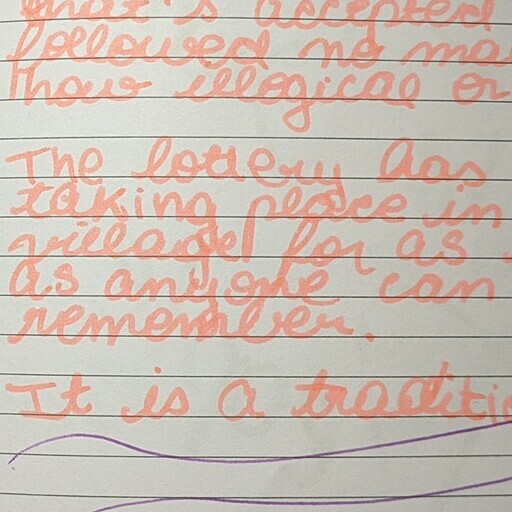 that's accepted
followed no ma
how illogical or
The lottery has
taking place in
village for as
as anyone can
remember.
It is a traditi